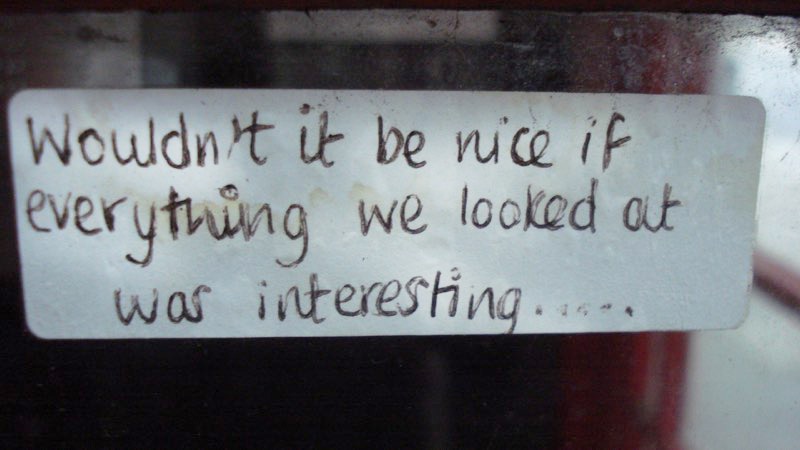 Wouldn't it be nice if
everything we looked at
was interesting......